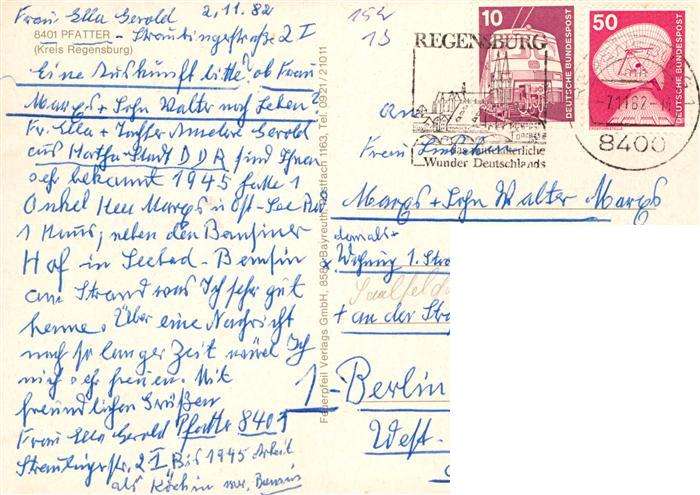 Frau Ella Gerold 2.11.82
8401 PFATTER - Straubingerstraße 2 I
(Kreis Regensburg)
Eine Auskunft bitte? ob Frau
Marqs + Sohn Walter noch Leben?
Fr. Ella + Tochter Annelore Gerold
aus Stadt DDR sind Ihnen
sehr bekannt 1945 hatte 1
Onkel Herr Marqs in Ost-See Aus
1 Haus; neben den Bansiner
Hof in Seebad - Bansin
am Strand was Ich sehr gut
kenne. Über eine Nachricht
nach so langer Zeit würde Ich
mich sehr freuen. Mit
freundlichen Grüßen
Frau Ella Gerold Pfatter 8401
Straubingerstr. 2 I, Bis 1945 Arbeit
als Köchin war, Bansin
Federpfeil Verlags GmbH, 8580 Bayreuth, Postfach 1163, Tel. 0921/21011
152
13
REGENSBURG
das mittelalterliche
Wunder Deutschlands
10
DEUTSCHE BUNDESPOST
50
DEUTSCHE BUNDESPOST
-7.11.82-
8400
an
Frau
Marqs + Sohn Walter Marqs
damals +
Wohnung 1. Stra
Saalfeld
+ an der Stra
1-Berlin
West-